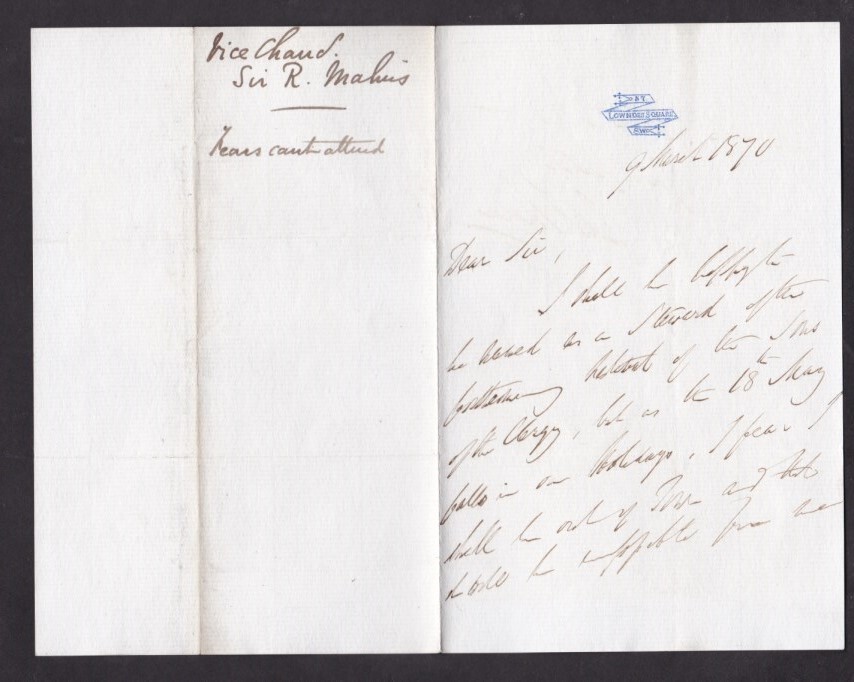 Vice Chanc.
Sir R. Malins
Fears cant attend
57.
LOWNDES SQUARE
S.W.
9 March 1870
Dear Sir,
I shall be happy to
be named as a Steward of the
forthcoming festival of the Sons
of the Clergy, but as the 18th May
falls in our Holidays, I fear I
shall be out of Town and that
it will be impossible for me